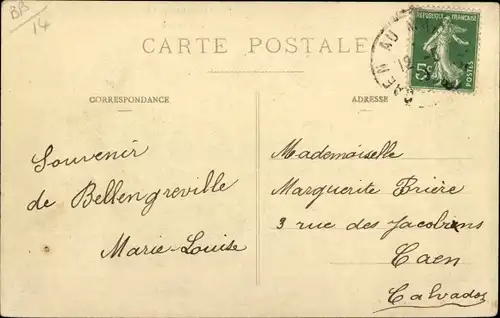 BB
14
CARTE POSTALE
REPUBLIQUE FRANÇAISE
5c
POSTES
CAEN AU
12
CORRESPONDANCE
ADRESSE
Souvenir
de Bellengreville
Marie-Louise
Mademoiselle
Marguerite Brière
3 rue des Jacobins
Caen
Calvados